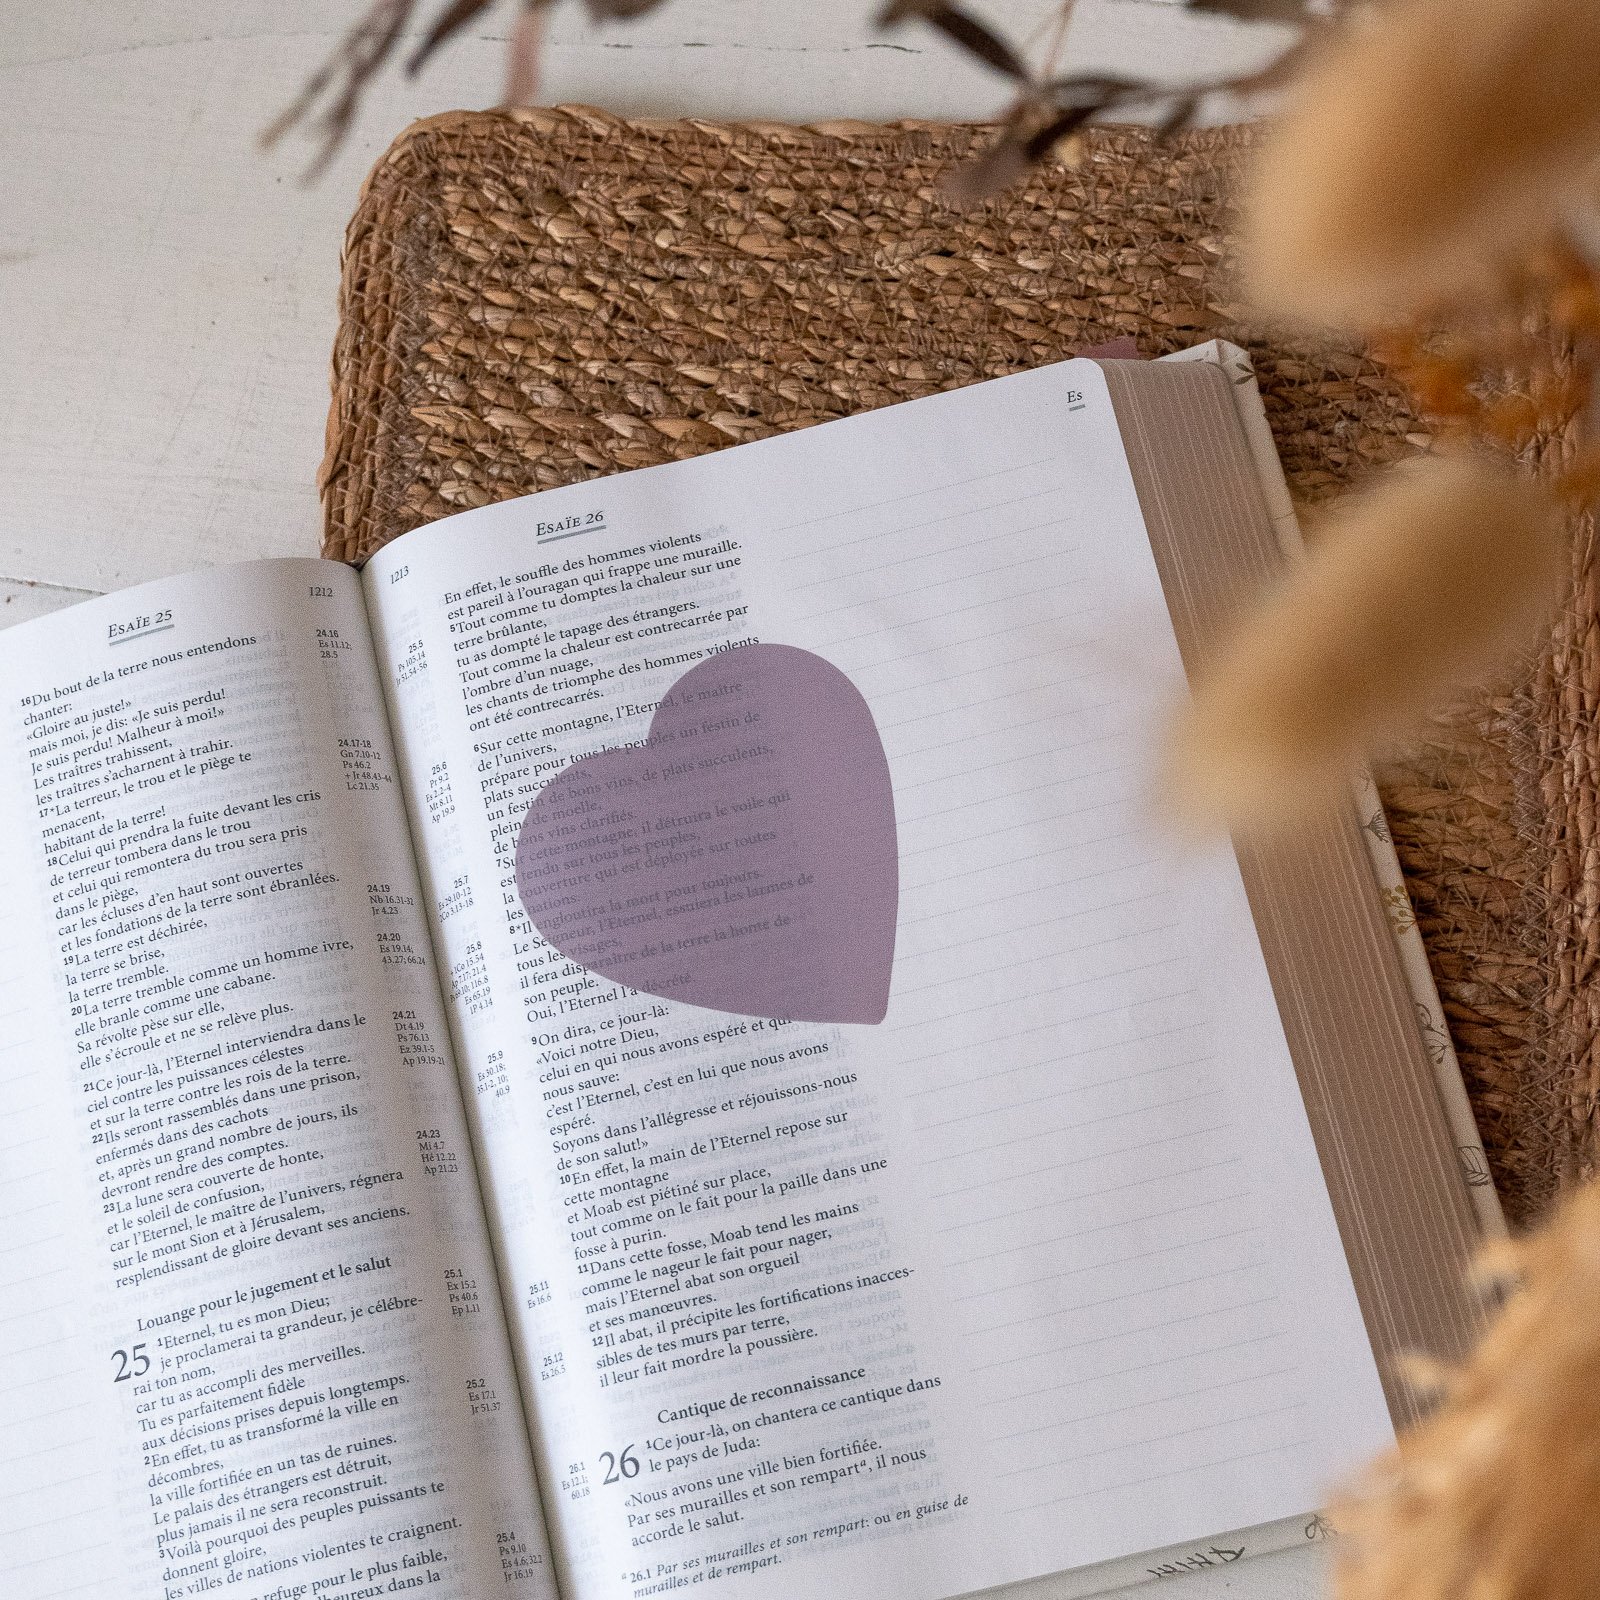 ESAÏE 25
1212
¹⁶Du bout de la terre nous entendons
chanter:
«Gloire au juste!»
mais moi, je dis: «Je suis perdu!
Je suis perdu! Malheur à moi!»
Les traîtres trahissent,
les traîtres s'acharnent à trahir.
¹⁷*La terreur, le trou et le piège te
menacent,
habitant de la terre!
¹⁸Celui qui prendra la fuite devant les cris
de terreur tombera dans le trou
et celui qui remontera du trou sera pris
dans le piège,
car les écluses d'en haut sont ouvertes
et les fondations de la terre sont ébranlées.
¹⁹La terre est déchirée,
la terre se brise,
la terre tremble.
²⁰La terre tremble comme un homme ivre,
elle branle comme une cabane.
Sa révolte pèse sur elle,
elle s'écroule et ne se relève plus.
²¹Ce jour-là, l'Eternel interviendra dans le
ciel contre les puissances célestes
et sur la terre contre les rois de la terre.
²²Ils seront rassemblés dans une prison,
enfermés dans des cachots
et, après un grand nombre de jours, ils
devront rendre des comptes.
²³La lune sera couverte de honte,
et le soleil de confusion,
car l'Eternel, le maître de l'univers, régnera
sur le mont Sion et à Jérusalem,
resplendissant de gloire devant ses anciens.
Louange pour le jugement et le salut
25 ¹Eternel, tu es mon Dieu;
je proclamerai ta grandeur, je célébre-
rai ton nom,
car tu as accompli des merveilles.
Tu es parfaitement fidèle
aux décisions prises depuis longtemps.
²En effet, tu as transformé la ville en
décombres,
la ville fortifiée en un tas de ruines.
Le palais des étrangers est détruit,
plus jamais il ne sera reconstruit.
³Voilà pourquoi des peuples puissants te
donnent gloire,
les villes de nations violentes te craignent.
refuge pour le plus faible,
dans la
24.16
Es 11.12;
28.5
24.17-18
Gn 7.10-12
Ps 46.2
+ Jr 48.43-44
Lc 21.35
24.19
Nb 16.31-32
Jr 4.23
24.20
Es 19.14;
43.27; 66.24
24.21
Dt 4.19
Ps 76.13
Ez 39.1-5
Ap 19.19-21
24.23
Mi 4.7
Hé 12.22
Ap 21.23
25.1
Ex 15.2
Ps 40.6
Ep 1.11
25.2
Es 17.1
Jr 51.37
25.4
Ps 9.10
Es 4.6; 32.2
Jr 16.19
1213
ESAÏE 26
Es
25.5
Ps 105.14
Jr 51.54-56
25.6
Pr 9.2
Es 2.2-4
Mt 8.11
Ap 19.9
25.7
Es 29.10-12
2Co 3.13-18
25.8
1Co 15.54
Ap 7.17; 21.4
Es 65.19
1P 4.14
25.9
Es 30.18;
35.1-2, 10;
40.9
25.11
Es 16.6
25.12
Es 26.5
26.1
Es 12.1;
60.18
En effet, le souffle des hommes violents
est pareil à l'ouragan qui frappe une muraille.
⁵Tout comme tu domptes la chaleur sur une
terre brûlante,
tu as dompté le tapage des étrangers.
Tout comme la chaleur est contrecarrée par
l'ombre d'un nuage,
les chants de triomphe des hommes violents
ont été contrecarrés.
⁶Sur cette montagne, l'Eternel, le maître
de l'univers,
prépare pour tous les peuples un festin de
plats succulents,
un festin de bons vins, de plats succulents,
pleins de moelle,
de bons vins clarifiés.
⁷Sur cette montagne, il détruira le voile qui
est tendu sur tous les peuples,
la couverture qui est déployée sur toutes
les nations.
⁸*Il engloutira la mort pour toujours.
Le Seigneur, l'Eternel, essuiera les larmes de
tous les visages,
il fera disparaître de la terre la honte de
son peuple.
Oui, l'Eternel l'a décrété.
⁹On dira, ce jour-là:
«Voici notre Dieu,
celui en qui nous avons espéré et qui
nous sauve:
c'est l'Eternel, c'est en lui que nous avons
espéré.
Soyons dans l'allégresse et réjouissons-nous
de son salut!»
¹⁰En effet, la main de l'Eternel repose sur
cette montagne
et Moab est piétiné sur place,
tout comme on le fait pour la paille dans une
fosse à purin.
¹¹Dans cette fosse, Moab tend les mains
comme le nageur le fait pour nager,
mais l'Eternel abat son orgueil
et ses manœuvres.
¹²Il abat, il précipite les fortifications inacces-
sibles de tes murs par terre,
il leur fait mordre la poussière.
Cantique de reconnaissance
26 ¹Ce jour-là, on chantera ce cantique dans
le pays de Juda:
«Nous avons une ville bien fortifiée.
Par ses murailles et son rempartᵃ, il nous
accorde le salut.
ᵃ 26.1 Par ses murailles et son rempart: ou en guise de
murailles et de rempart.